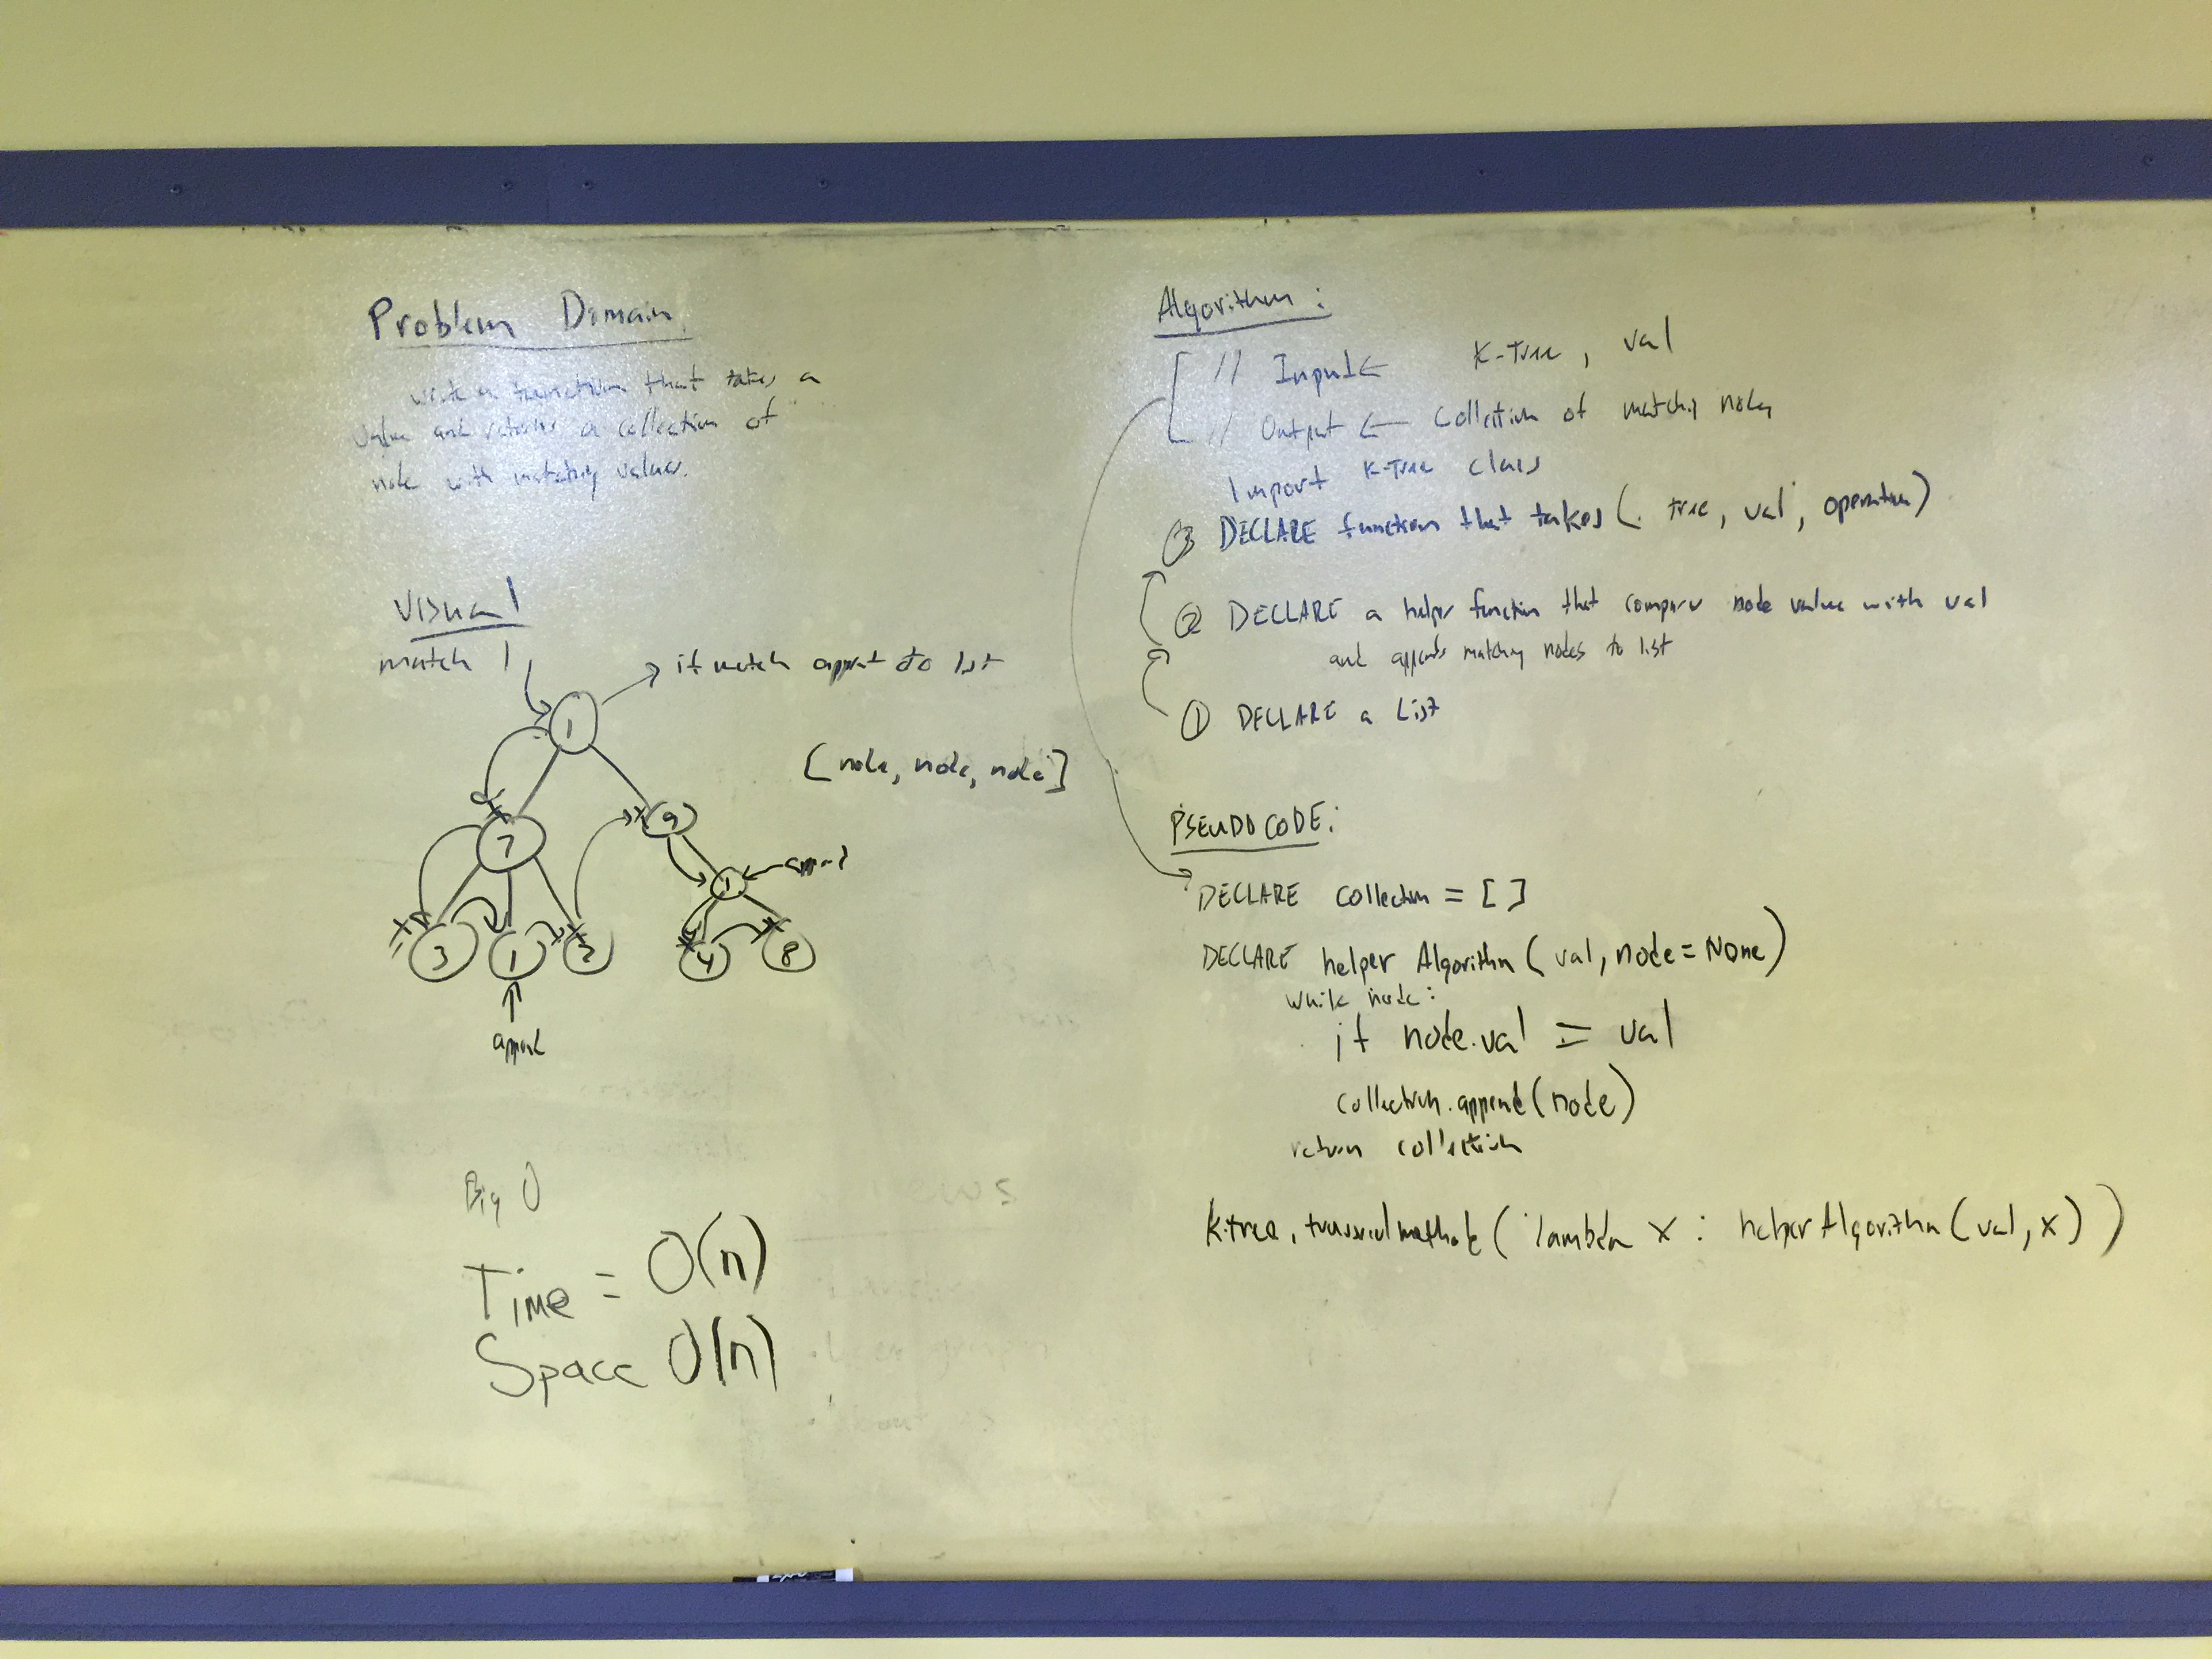 Problem Domain
write a function that takes a
value and returns a collection of
node with matching values.
Visual
match 1
if match append to list
1
[node, node, node]
7
9
1
3
1
2
4
8
append
Big O
Time = O(n)
Space O(n)
Algorithm:
// Input ← K-Tree, val
// Output ← Collection of matching nodes
Import K-Tree class
③ DECLARE function that takes (tree, val, operation)
② DECLARE a helper function that compare node value with val
and appends matching nodes to list
① DECLARE a List
PSEUDO CODE:
DECLARE collection = []
DECLARE helper Algorithm (val, node = None)
while node:
if node.val == val
collection.append(node)
return collection
K-tree. (lambda x : helper Algorithm (val, x))